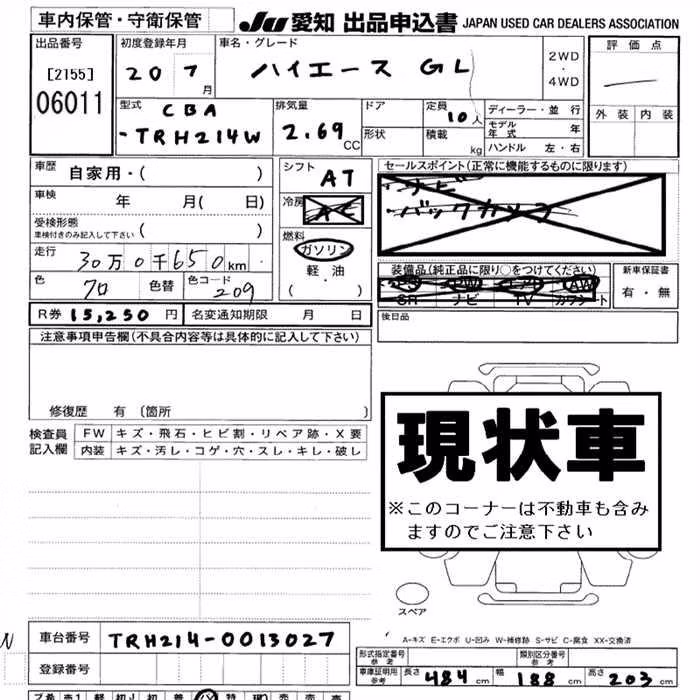 車内保管・守衛保管 JU 愛知 出品申込書 JAPAN USED CAR DEALERS ASSOCIATION
出品番号 初度登録年月 車名・グレード 2WD ・ 4WD 評価点
[2155] 20 7 月 ハイエース GL
06011
型式 CBA 排気量 ドア 定員 10人 ディーラー・並行 外装 内装
-TRH214W 2.69 CC 形状 積載 kg モデル年式 年
ハンドル 左・右
車歴 自家用・( ) シフト AT セールスポイント(正常に機能するものに限ります)
車検 年 月( 日) 冷房 AC ・ナビ
受検形態 ( ) ・バックカメラ
車検付きのみ記入して下さい
燃料
走行 30万0千650km ガソリン
軽・油
装備品(純正品に限り○をつけてください) 新車保証書
色 クロ 色替 色コード 209 ・( ) PS PW エアB AW 有・無
SR ナビ TV カワシート
R券 15,250 円 名変通知期限 月 日 後日品
注意事項申告欄(不具合内容等は具体的に記入して下さい)
修復歴 有 〔箇所 〕
検査員 FW キズ・飛石・ヒビ割・リペア跡・X要
記入欄 内装 キズ・汚レ・コゲ・穴・スレ・キレ・破レ
現状車
※このコーナーは不動車も含み
ますのでご注意下さい
スペア
A-キズ E-エクボ U-凹み W-補修跡 S-サビ C-腐食 XX-交換済
N 車台番号 TRH214-0013027
登録番号
形式指定番号 参考 類別区分番号 参考
車庫証明用 参考 長さ 484 cm 幅 188 cm 高さ 203 cm